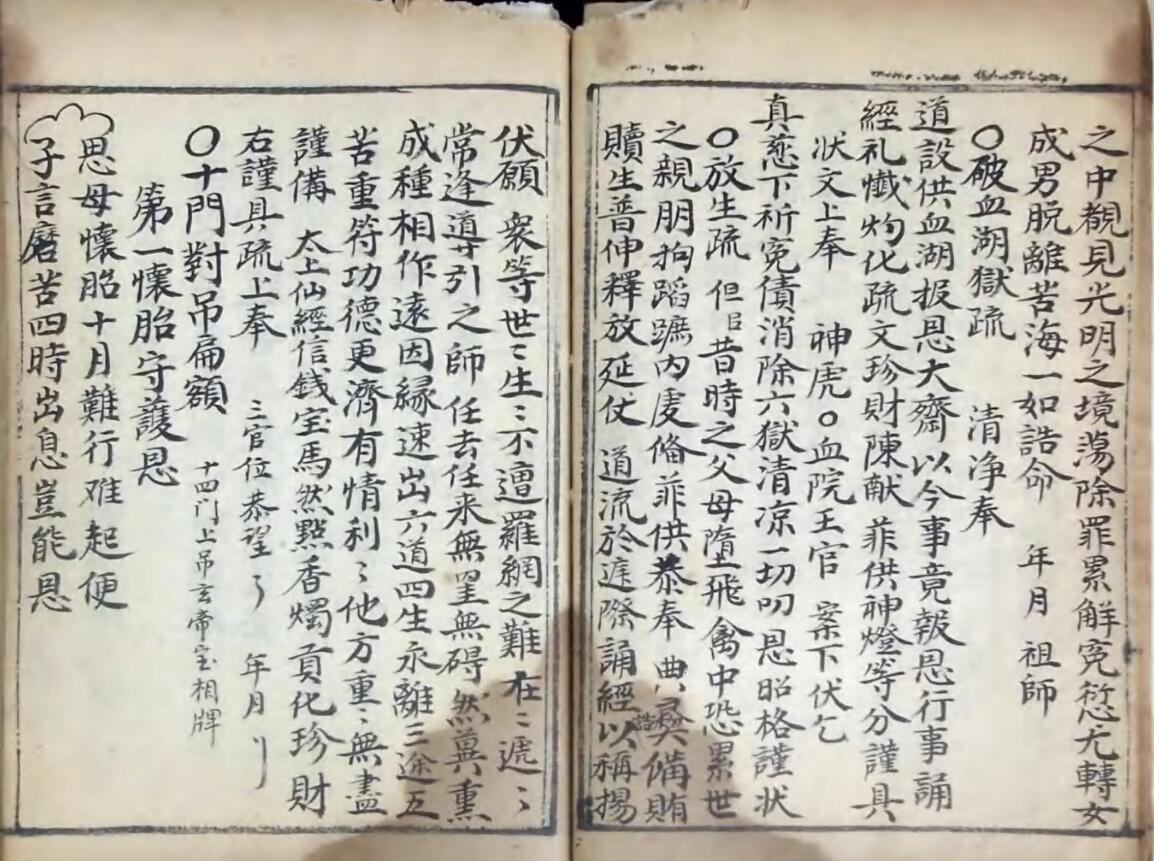 之中覩見光明之境蕩除罪累解冤愆尤轉女
成男脱離苦海一如誥命 年月 祖師
〇破血湖獄疏 清净奉
道設供血湖报恩大齋以今事竟報恩行事誦
經礼懺灼化疏文珍財陳献菲供神燈等分謹具
状文上奉 神虎〇血院王官 案下伏乞
真慈下祈冤債消除六獄清凉一切叨恩昭格謹状
〇放生疏 但臣昔時之父母墮飛禽中恐累世
之親朋拘蹈蹠内虔俻菲供恭奉 典彛俻賄
贖生普伸釋放延仗 道流於遅際誦經以稱揚
伏願 衆等世〻生〻不遭羅網之難在〻遞〻
常逢導引之師任去任来無罣無碍然兾熏
成種相作遠因縁速出六道四生永離三途五
苦重符功德更濟有情利〻他方重〻無盡
謹備 太上仙經信錢宝馬然㸃香燭貢化珍財
右謹具疏上奉 三官位恭望了 年月刂
〇十門對吊扁額 十四门上吊玄帝宝相牌
第一懷胎守護恩
思母懷胎十月難行难起便
子言磨苦四時出息豈能忌